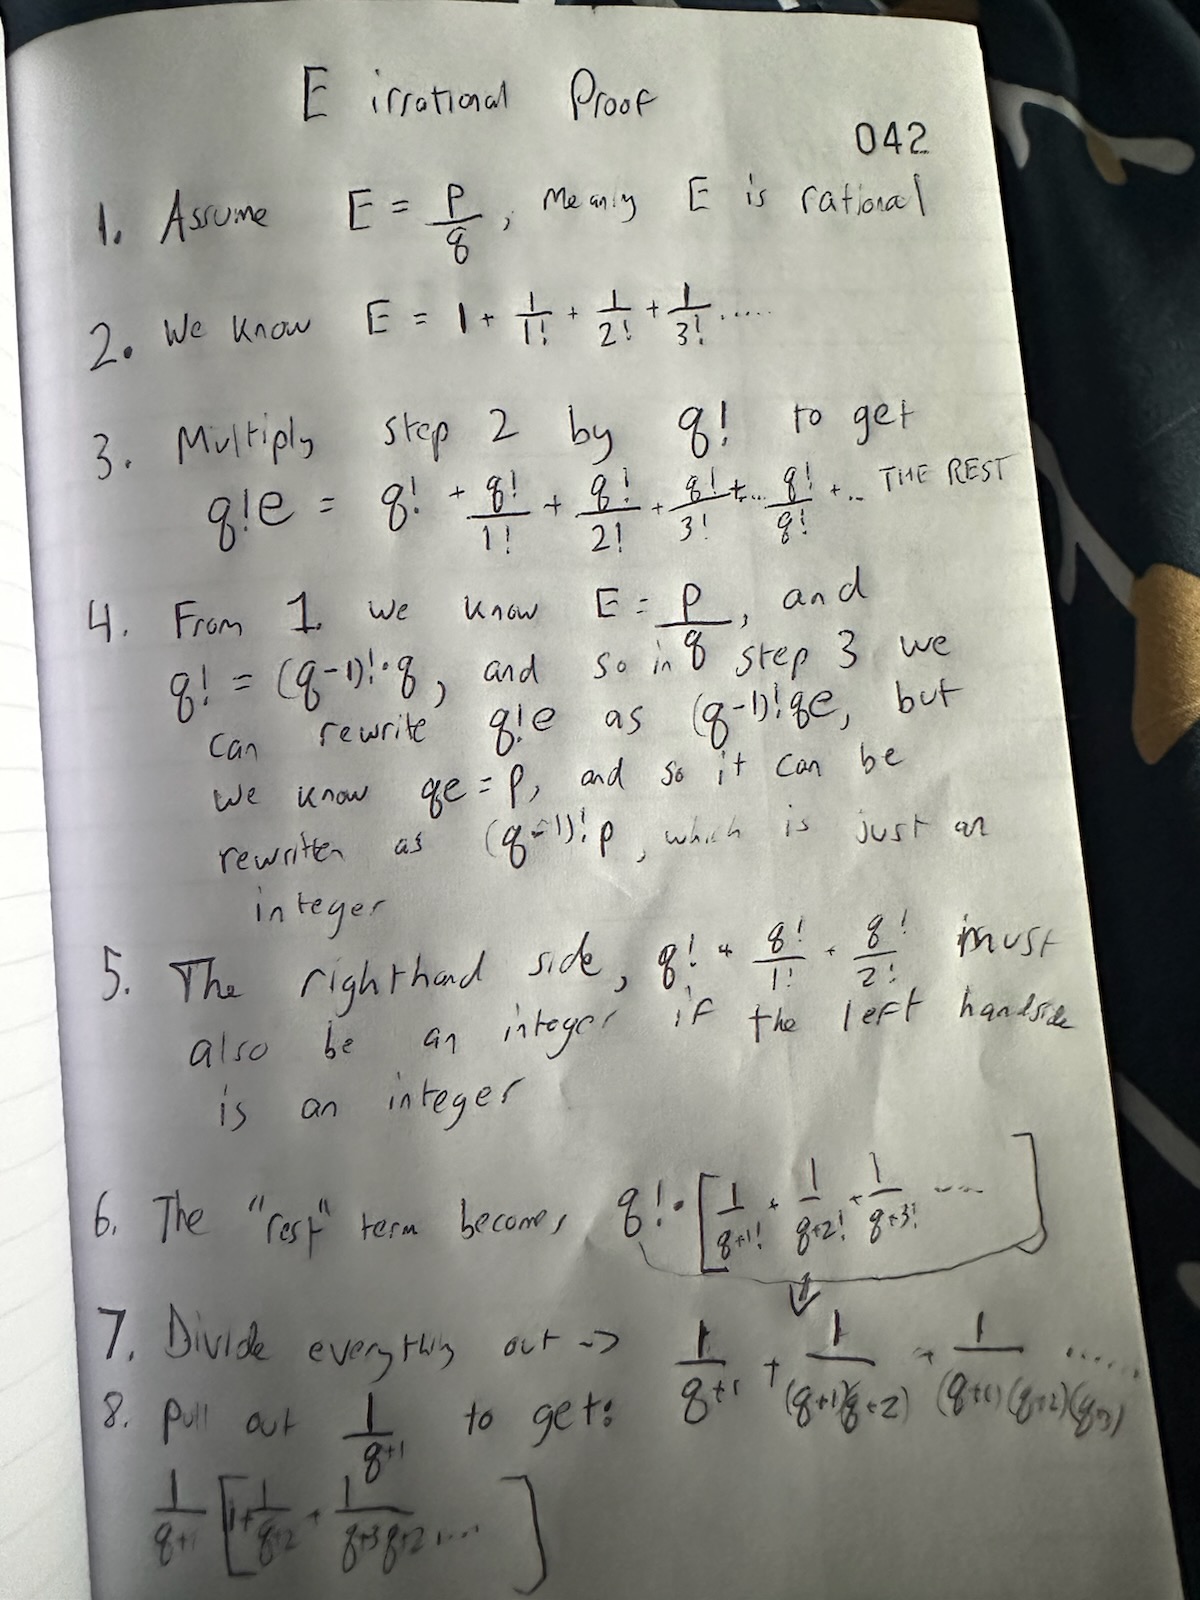 E irrational Proof
042
1. Assume E = p/q, Meanly E is rational
2. We know E = 1 + 1/1! + 1/2! + 1/3! .....
3. Multiply step 2 by q! to get
q!e = q! + q!/1! + q!/2! + q!/3! + ... q!/q! + .. THE REST
4. From 1. we know E = p/q, and
q! = (q-1)!·q, and so in step 3 we
can rewrite q!e as (q-1)!qe, but
we know qe = p, and so it can be
rewritten as (q-1)!p, which is just an
integer
5. The righthand side, q! + q!/1! + q!/2! must
also be an integer if the left handside
is an integer
6. The "rest" term becomes q!·[1/q+1! + 1/q+2! + 1/q+3! ....]
7. Divide everything out -> 1/q+1 + 1/(q+1)(q+2) + 1/(q+1)(q+2)(q+3) ......
8. Pull out 1/q+1 to get:
1/q+1 [1 + 1/q+2 + 1/q+3q+2 ....]